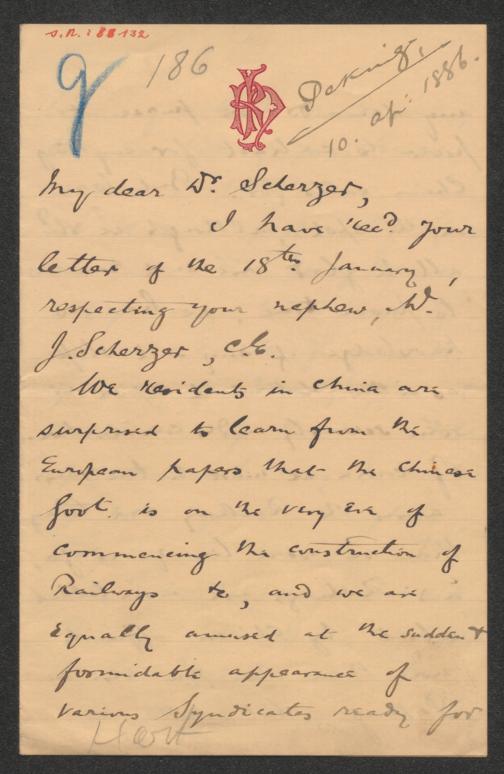 S.N. 188132
9
186
Peking,
10. Ap: 1886.
My dear Dr. Scherzer,
I have rec'd. your
letter of the 18th. January,
respecting your nephew, Mr.
J. Scherzer, C.E.
We residents in China are
surprised to learn from the
European papers that the Chinese
Govt. is on the very eve of
commencing the construction of
Railways &c, and we are
equally amused at the sudden &
formidable appearance of
various Syndicates ready for
Hart